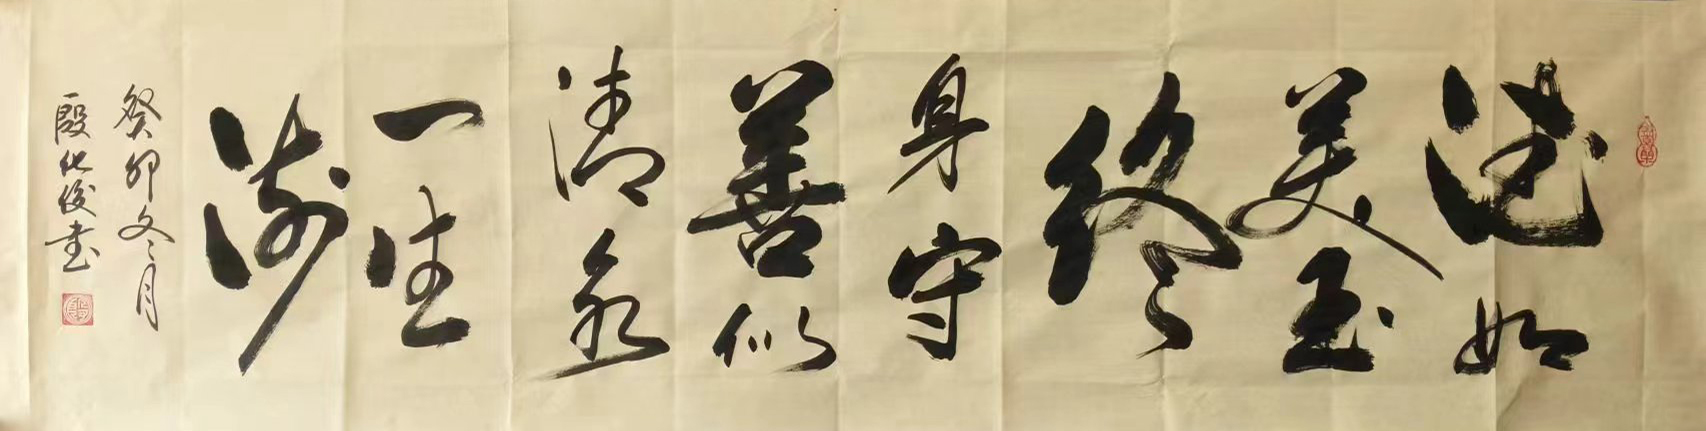 德如
美玉
终
身守
善似
清泉
一生
癸卯冬月
殷化俊书